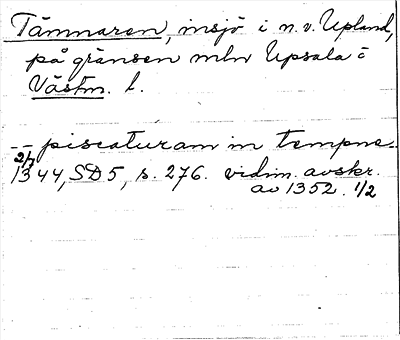 Tämnaren, insjö i n.v. Upland,
på gränsen mln Upsala o
Västm. l.
-- piscaturam in tempne..
2/7
1344, SD 5, s. 276. vidim. avskr.
av 1352. 1/2